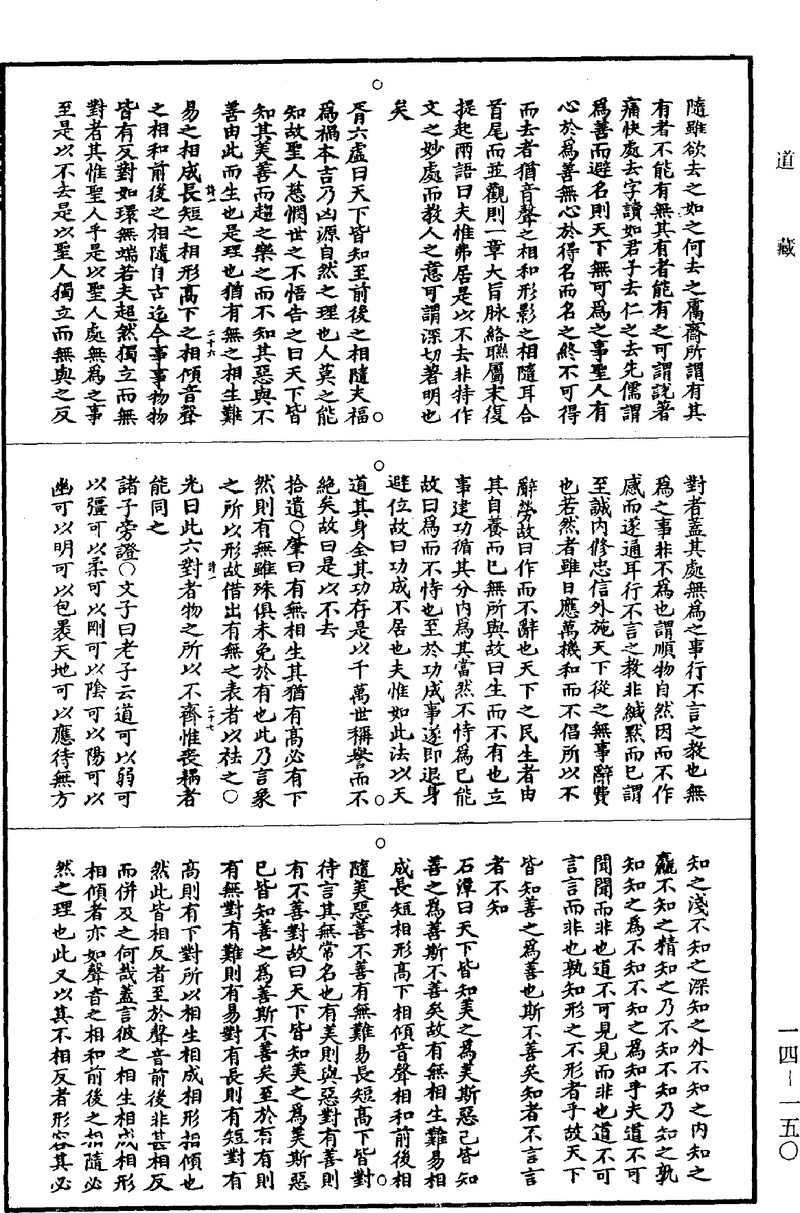 道藏
隨雖欲去之如之何去之厲齋所謂有其
有者不能有無其有者能有之可謂說著
痛快處去字讀如君子去仁之去先儒謂
為善而避名則天下無可為之事聖人有
心於為善無心於得名而名之終不可得
而去者猶音聲之相和形影之相隨耳合
首尾而並觀則一章大旨脉絡聯屬末復
提起兩語曰夫惟弗居是以不去非特作
文之妙處而教人之意可謂深切著明也
矣
胥六虛曰天下皆知至前後之相隨夫福
為禍本吉乃凶源自然之理也人莫之能
知故聖人慈憫世之不悟告之曰天下皆
知其美善而趨之樂之而不知其惡與不
善由此而生也是理也猶有無之相生難
易之相成長短之相形高下之相傾音聲
之相和前後之相隨自古迄今事事物物
皆有反對如環無端若夫超然獨立而無
對者其惟聖人乎是以聖人處無為之事
至是以不去是以聖人獨立而無與之反
二十六
對者蓋其處無為之事行不言之教也無
為之事非不為也謂順物自然因而不作
感而遂通耳行不言之教非緘默而已謂
至誠內修忠信外施天下從之無事辭費
也若然者雖日應萬機和而不倡所以不
辭勞故曰作而不辭也天下之民生者由
其自養而已無所與故曰生而不有也立
事建功循其分內為其當然不恃為已能
故曰為而不恃也至於功成事遂即退身
避位故曰功成不居也夫惟如此法以天
道其身全其功存是以千萬世稱譽而不
絕矣故曰是以不去
拾遺○肇曰有無相生其猶有高必有下
然則有無雖殊俱未免於有也此乃言象
之所以形故借出有無之表者以祛之○
光曰此六對者物之所以不齊惟喪耦者
能同之
諸子旁證○文子曰老子云道可以弱可
以彊可以柔可以剛可以陰可以陽可以
幽可以明可以包裹天地可以應待無方
二十七
知之淺不知之深知之外不知之內知之
麤不知之精知之乃不知不知乃知之孰
知知之為不知不知之為知乎夫道不可
聞聞而非也道不可見見而非也道不可
言言而非也孰知形之不形者乎故天下
皆知善之為善也斯不善矣知者不言言
者不知
石潭曰天下皆知美之為美斯惡已皆知
善之為善斯不善矣故有無相生難易相
成長短相形高下相傾音聲相和前後相
隨美惡善不善有無難易長短高下皆對
待言其無常名也有美則與惡對有善則
有不善對故曰天下皆知美之為美斯惡
已皆知善之為善斯不善矣至於有有則
有無對有難則有易對有長則有短對有
高則有下對所以相生相成相形相傾也
然此皆相反者至於聲音前後非甚相反
而併及之何哉蓋言彼之相生相成相形
相傾者亦如聲音之相和前後之相隨必
然之理也此又以其不相反者形容其必
一四-一五〇